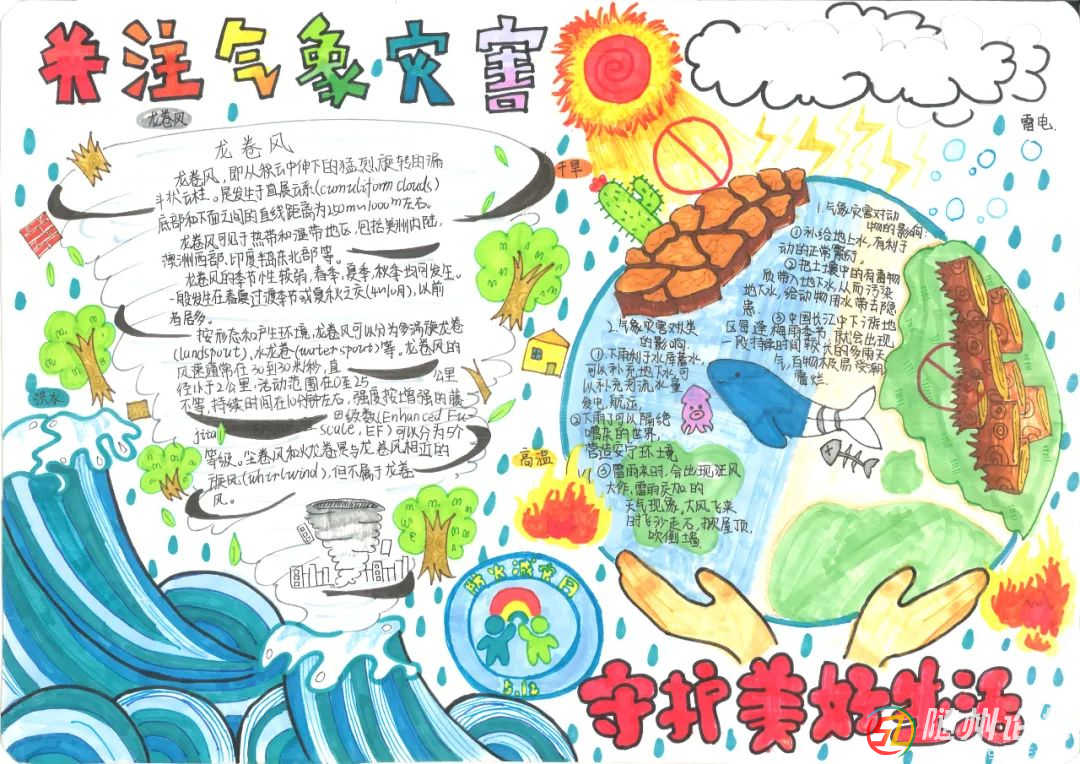 关注气象灾害
龙卷风
龙卷风
龙卷风，即从积云中伸下的猛烈旋转的漏
斗状云柱。是发生于直展云系(cumuliform clouds)
底部和下面之间的直线距离为250m-1000m左右。
龙卷风可见于热带和温带地区，包括美洲内陆，
澳洲西部、印度半岛东北部等。
龙卷风的季节性较弱，春季、夏季、秋季均可发生。
一般发生在春夏过渡季节或夏秋之交
以前
者居多。
按形态和产生环境，龙卷风可以分为多涡旋龙卷
(landspout)，水龙卷(waterspout)等。龙卷风的
风速通常在30到130米/秒，直
径小于2公里，活动范围在0至25
公里
不等，持续时间在10分钟左右，强度按增强的藤
田级数(Enhanced Fu-
jita
scale，EF)可以分为5个
等级。尘卷风和火龙卷是与龙卷风相近的
旋风(whirlwind)，但不属于龙卷
风。
干旱
雷电
洪水
高温
1.气象灾害对动
物的影响：
①补给地上水，有利于
动的正常繁衍。
②把土壤中的有毒物
质带入地下水，从而污染
地下水，给动物用水带去隐
患。
③中国长江中下游地
区每逢梅雨季节，就会出现
一段持续时间较长的多雨天
气，百物极易受潮
霉烂.
2.气象灾害对人类
的影响
①下雨利于水库蓄水，
可以补充地下水，可
以补充河流水量
发电，航运，
②下雨了可以隔绝
喧杂的世界，
营造安宁环境
③雷雨来时，会出现狂风
大作，雷雨交加的
天气现象。大风飞来
时飞沙走石，掀屋顶，
吹倒墙.
防灾减灾日
5.12
守护美好生活
随州论